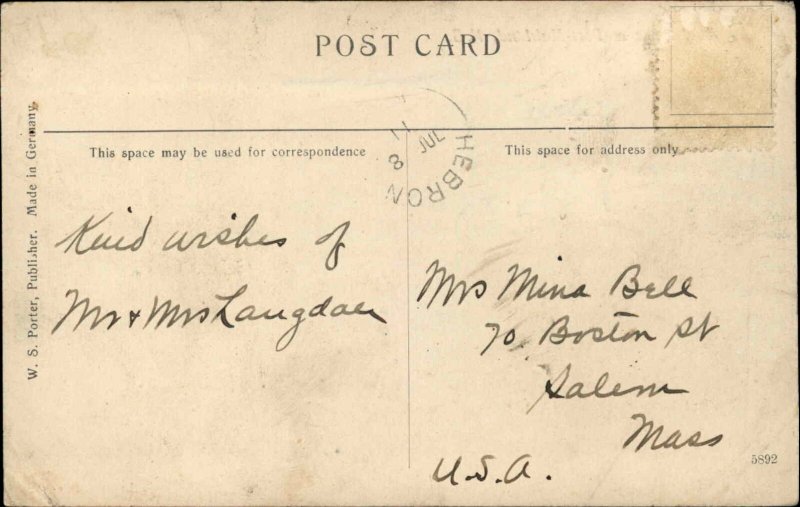 POST CARD
This space may be used for correspondence
This space for address only
HEBRON
JUL
8
11
W. S. Porter, Publisher. Made in Germany.
Kind wishes of
Mr & Mrs Langdon
Mrs Mina Bell
70 Boston St
Salem
Mass
U.S.A.
5892